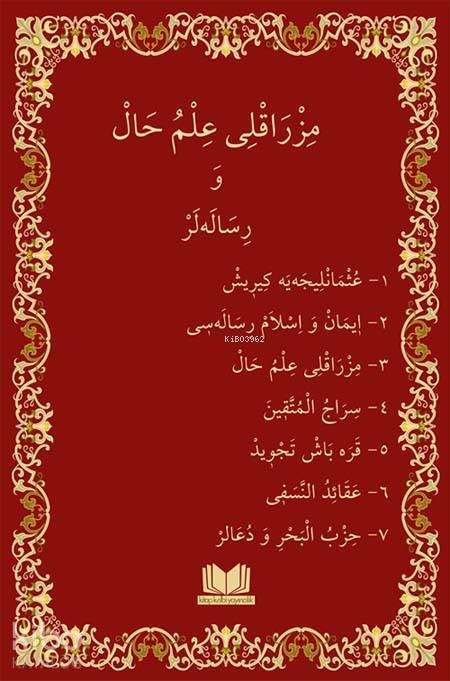 مِزْرَاقْلِى عِلْمُ حَالْ
وَ
رِسَالَەلَرْ
١- عُثْمَانْلِيجَەيَە كِيرِيشْ
٢- اِيمَانْ وَ اِسْلَامْ رِسَالَەسِى
KiB03962
٣- مِزْرَاقْلِى عِلْمُ حَالْ
٤- سِرَاجُ الْمُتَّقِينَ
٥- قَرَە بَاشْ تَجْوِيدْ
٦- عَقَائِدُ النَّسَفِى
٧- حِزْبُ الْبَحْرِ وَ دُعَالَرْ
kitap kalbi yayıncılık